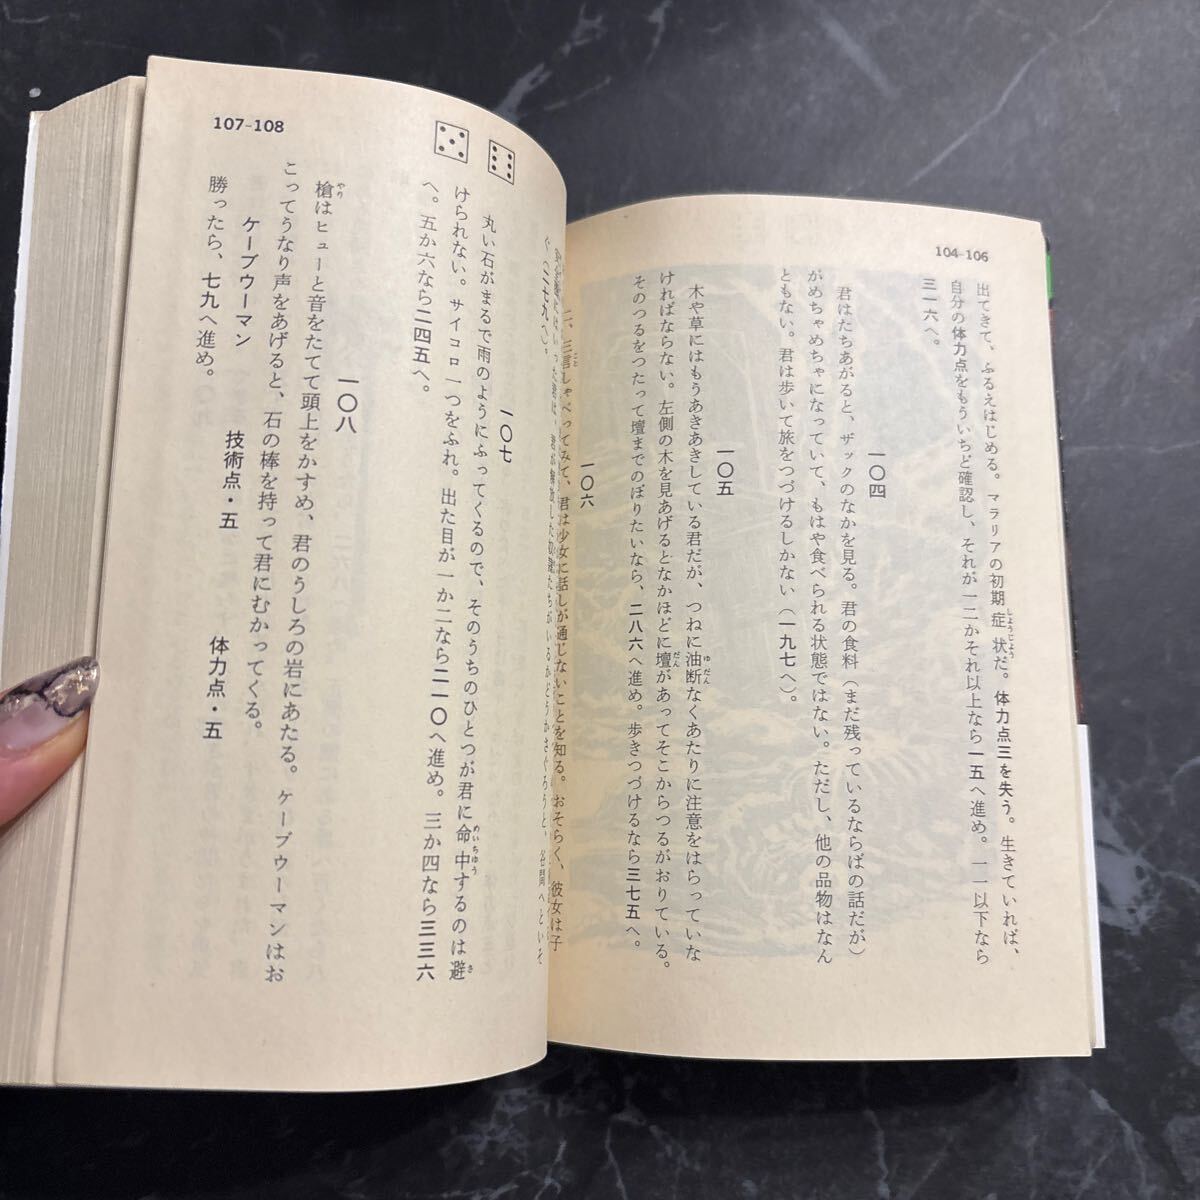 104-106
出てきて、ふるえはじめる。マラリアの初期症状だ。体力点三を失う。生きていれば、
自分の体力点をもういちど確認し、それが一二かそれ以上なら一五へ進め。一一以下なら
三一六へ。
一〇四
君はたちあがると、ザックのなかを見る。君の食料(まだ残っているならばの話だが)
がめちゃめちゃになっていて、もはや食べられる状態ではない。ただし、他の品物はなん
ともない。君は歩いて旅をつづけるしかない(一九七へ)。
一〇五
木や草にはもうあきあきしている君だが、つねに油断なくあたりに注意をはらっていな
ければならない。左側の木を見あげるとなかほどに壇があってそこからつるがおりている。
そのつるをつたって壇までのぼりたいなら、二八六へ進め。歩きつづけるなら三七五へ。
一〇六
二、三言しゃべってみて、君は少女に話しが通じないことを知る。おそらく、彼女は子
たちがいるかどうかさぐろうと、谷間へといそ
ぐ(二七九へ)。
107-108
一〇七
丸い石がまるで雨のようにふってくるので、そのうちのひとつが君に命中するのは避
けられない。サイコロ一つをふれ。出た目が一か二なら二一〇へ進め。三か四なら三三六
へ。五か六なら二四五へ。
一〇八
槍はヒューと音をたてて頭上をかすめ、君のうしろの岩にあたる。ケーブウーマンはお
こってうなり声をあげると、石の棒を持って君にむかってくる。
ケーブウーマン 技術点・五 体力点・五
勝ったら、七九へ進め。